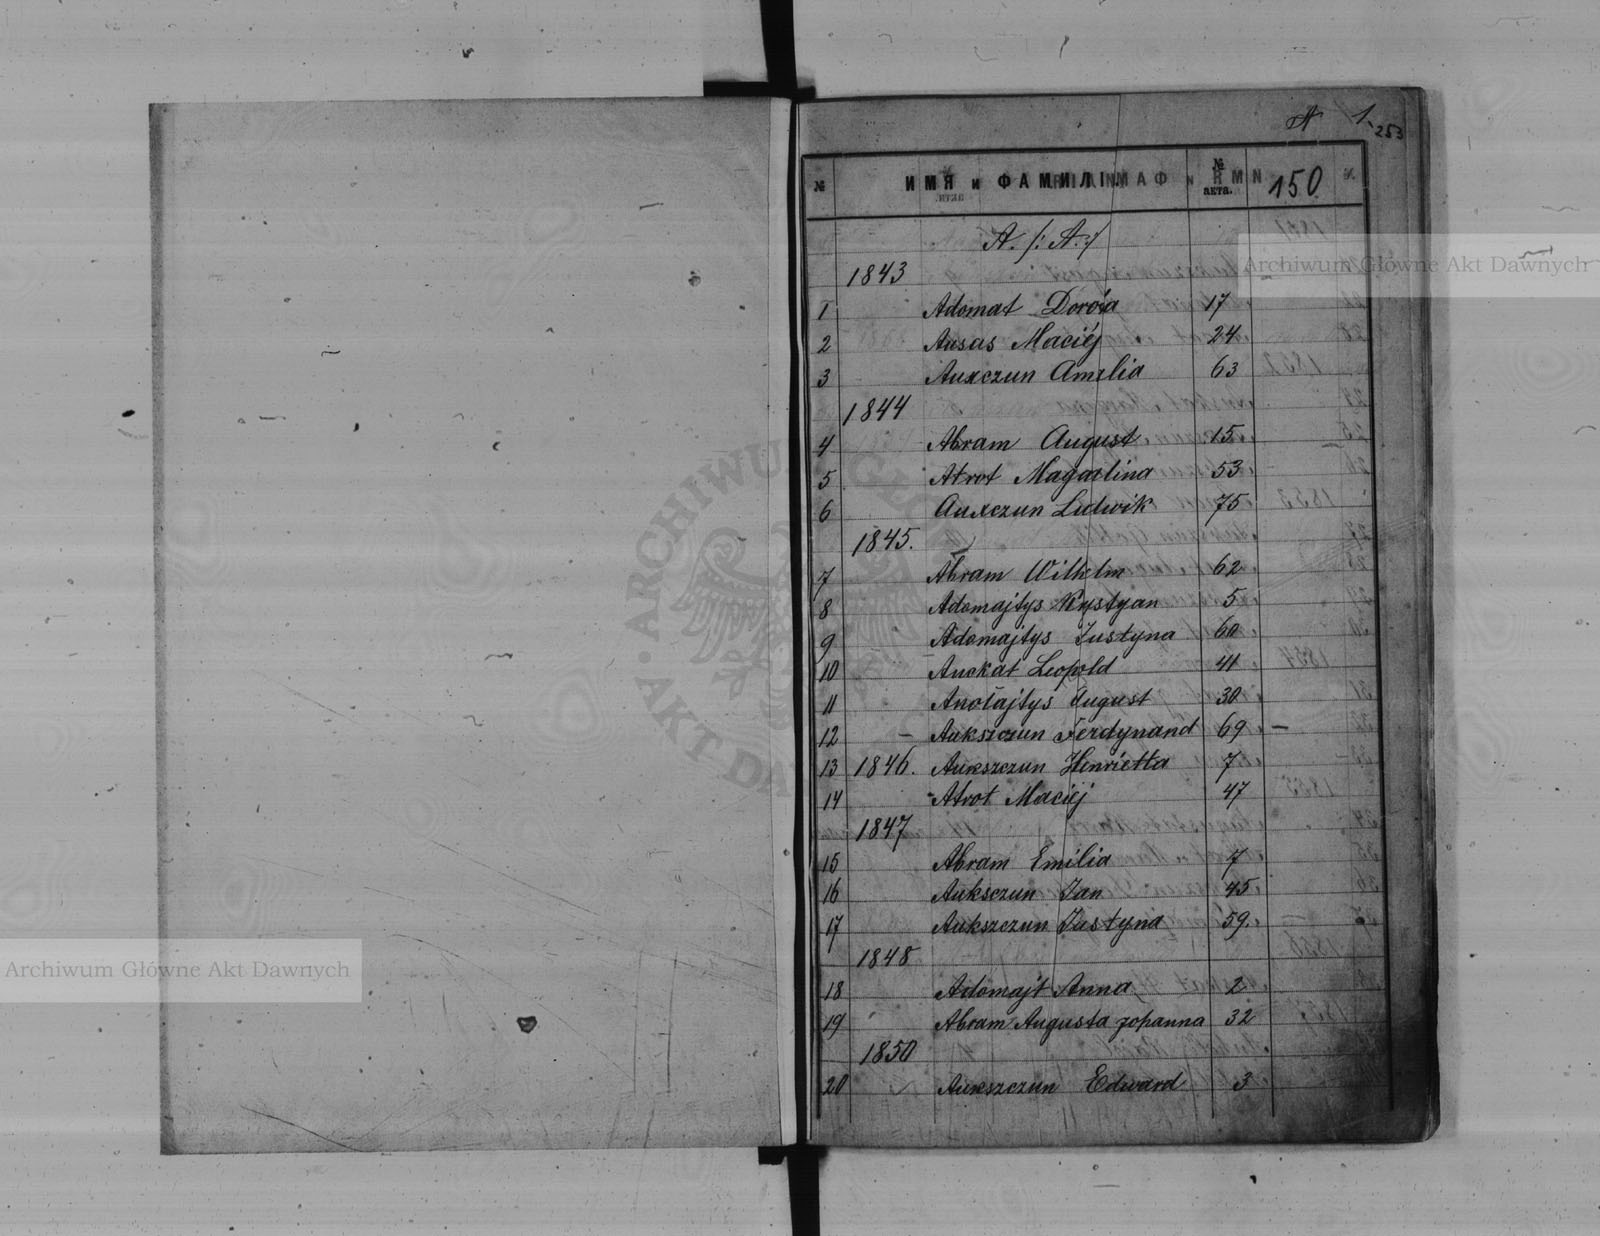 A 1.
253
№ ИМЯ и ФАМИЛІЯ № акта. 150
A. /: A :/
1843
1 Adomat Dorota 17
2 Ausas Maciéj 24
3 Auxczun Amelia 63
1844
4 Abram August 15
5 Atrot Magdalina 53
6 Auxczun Ludwik 75
1845.
7 Abram Wilhelm 62
8 Adomajtys Krystyan 5
9 Adomajtys Justyna 60
10 Auckat Leopold 41
11 August 30
12 – Aukszczun Ferdynand 69 –
13 1846. Aukszczun Henrietta 7
14 Atrot Maciej 47
1847
15 Abram Emilia 7
16 Auksczun Jan 45
17 Aukszczun Justyna 59.
1848
18 Adomajt Anna 2
19 Abram Augusta Johanna 32
1850
20 Aukszczun Edward 3
Archiwum Główne Akt Dawnych
Archiwum Główne Akt Dawnych
ARCHIWUM GŁÓWNE AKT DAWNYCH